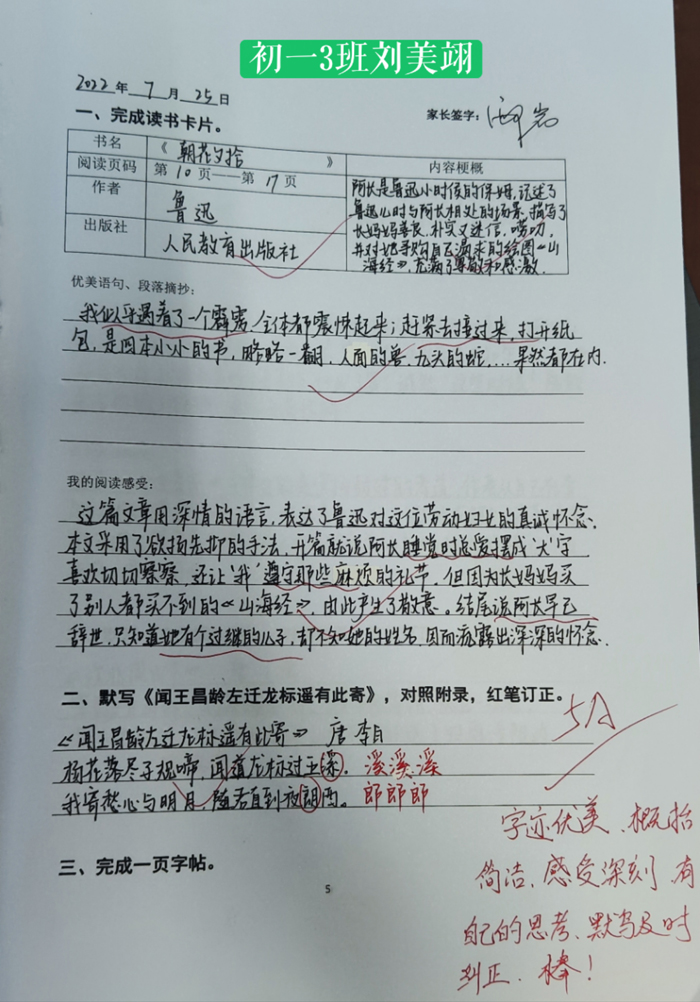 初一3班刘美翊
2022年7月25日
家长签字：
一、完成读书卡片。
书名 《朝花夕拾》 内容梗概
阅读页码 第10页——第17页
作者 鲁迅
出版社 人民教育出版社
阿长是鲁迅小时侯的保姆，记述了
鲁迅儿时与阿长相处的场景，描写了
长妈妈善良、朴实又迷信、唠叨，
并对她寻购自己渴求的绘图《山
海经》，充满了尊敬和感激．
优美语句、段落摘抄：
我似乎遇着了一个霹雳，全体都震悚起来；赶紧去接过来，打开纸
包，是四本小小的书，略略一翻，人面的兽，九头的蛇，……果然都在内．
我的阅读感受：
这篇文章用深情的语言，表达了鲁迅对这位劳动妇女的真诚怀念．
本文采用了欲扬先抑的手法，开篇就说阿长睡觉时总爱摆成"大"字
喜欢切切察察，还让"我"遵守那些麻烦的礼节，但因为长妈妈买
了别人都买不到的《山海经》，由此产生了敬意。结尾说阿长早已
辞世，只知道她有个过继的儿子，却不知她的姓名，因而流露出深深的怀念．
二、默写《闻王昌龄左迁龙标遥有此寄》，对照附录，红笔订正。
《闻王昌龄左迁龙标遥有此寄》 唐 李白
杨花落尽子规啼，闻道龙标过五溪． 溪溪溪
我寄愁心与明月，随君直到夜郎西。 郎郎郎
5A
三、完成一页字帖。
字迹优美、概括
简洁、感受深刻 有
自己的思考、默写及时
纠正．棒！
5